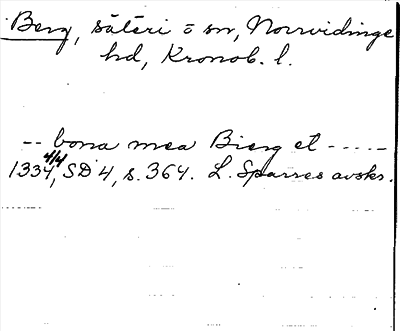 Berg, säteri o sn, Norrvidinge
hd, Kronob. l.
-- bona mea Bierg et -----
1334 4/4, SD 4, s. 364. L. Sparres avskr.